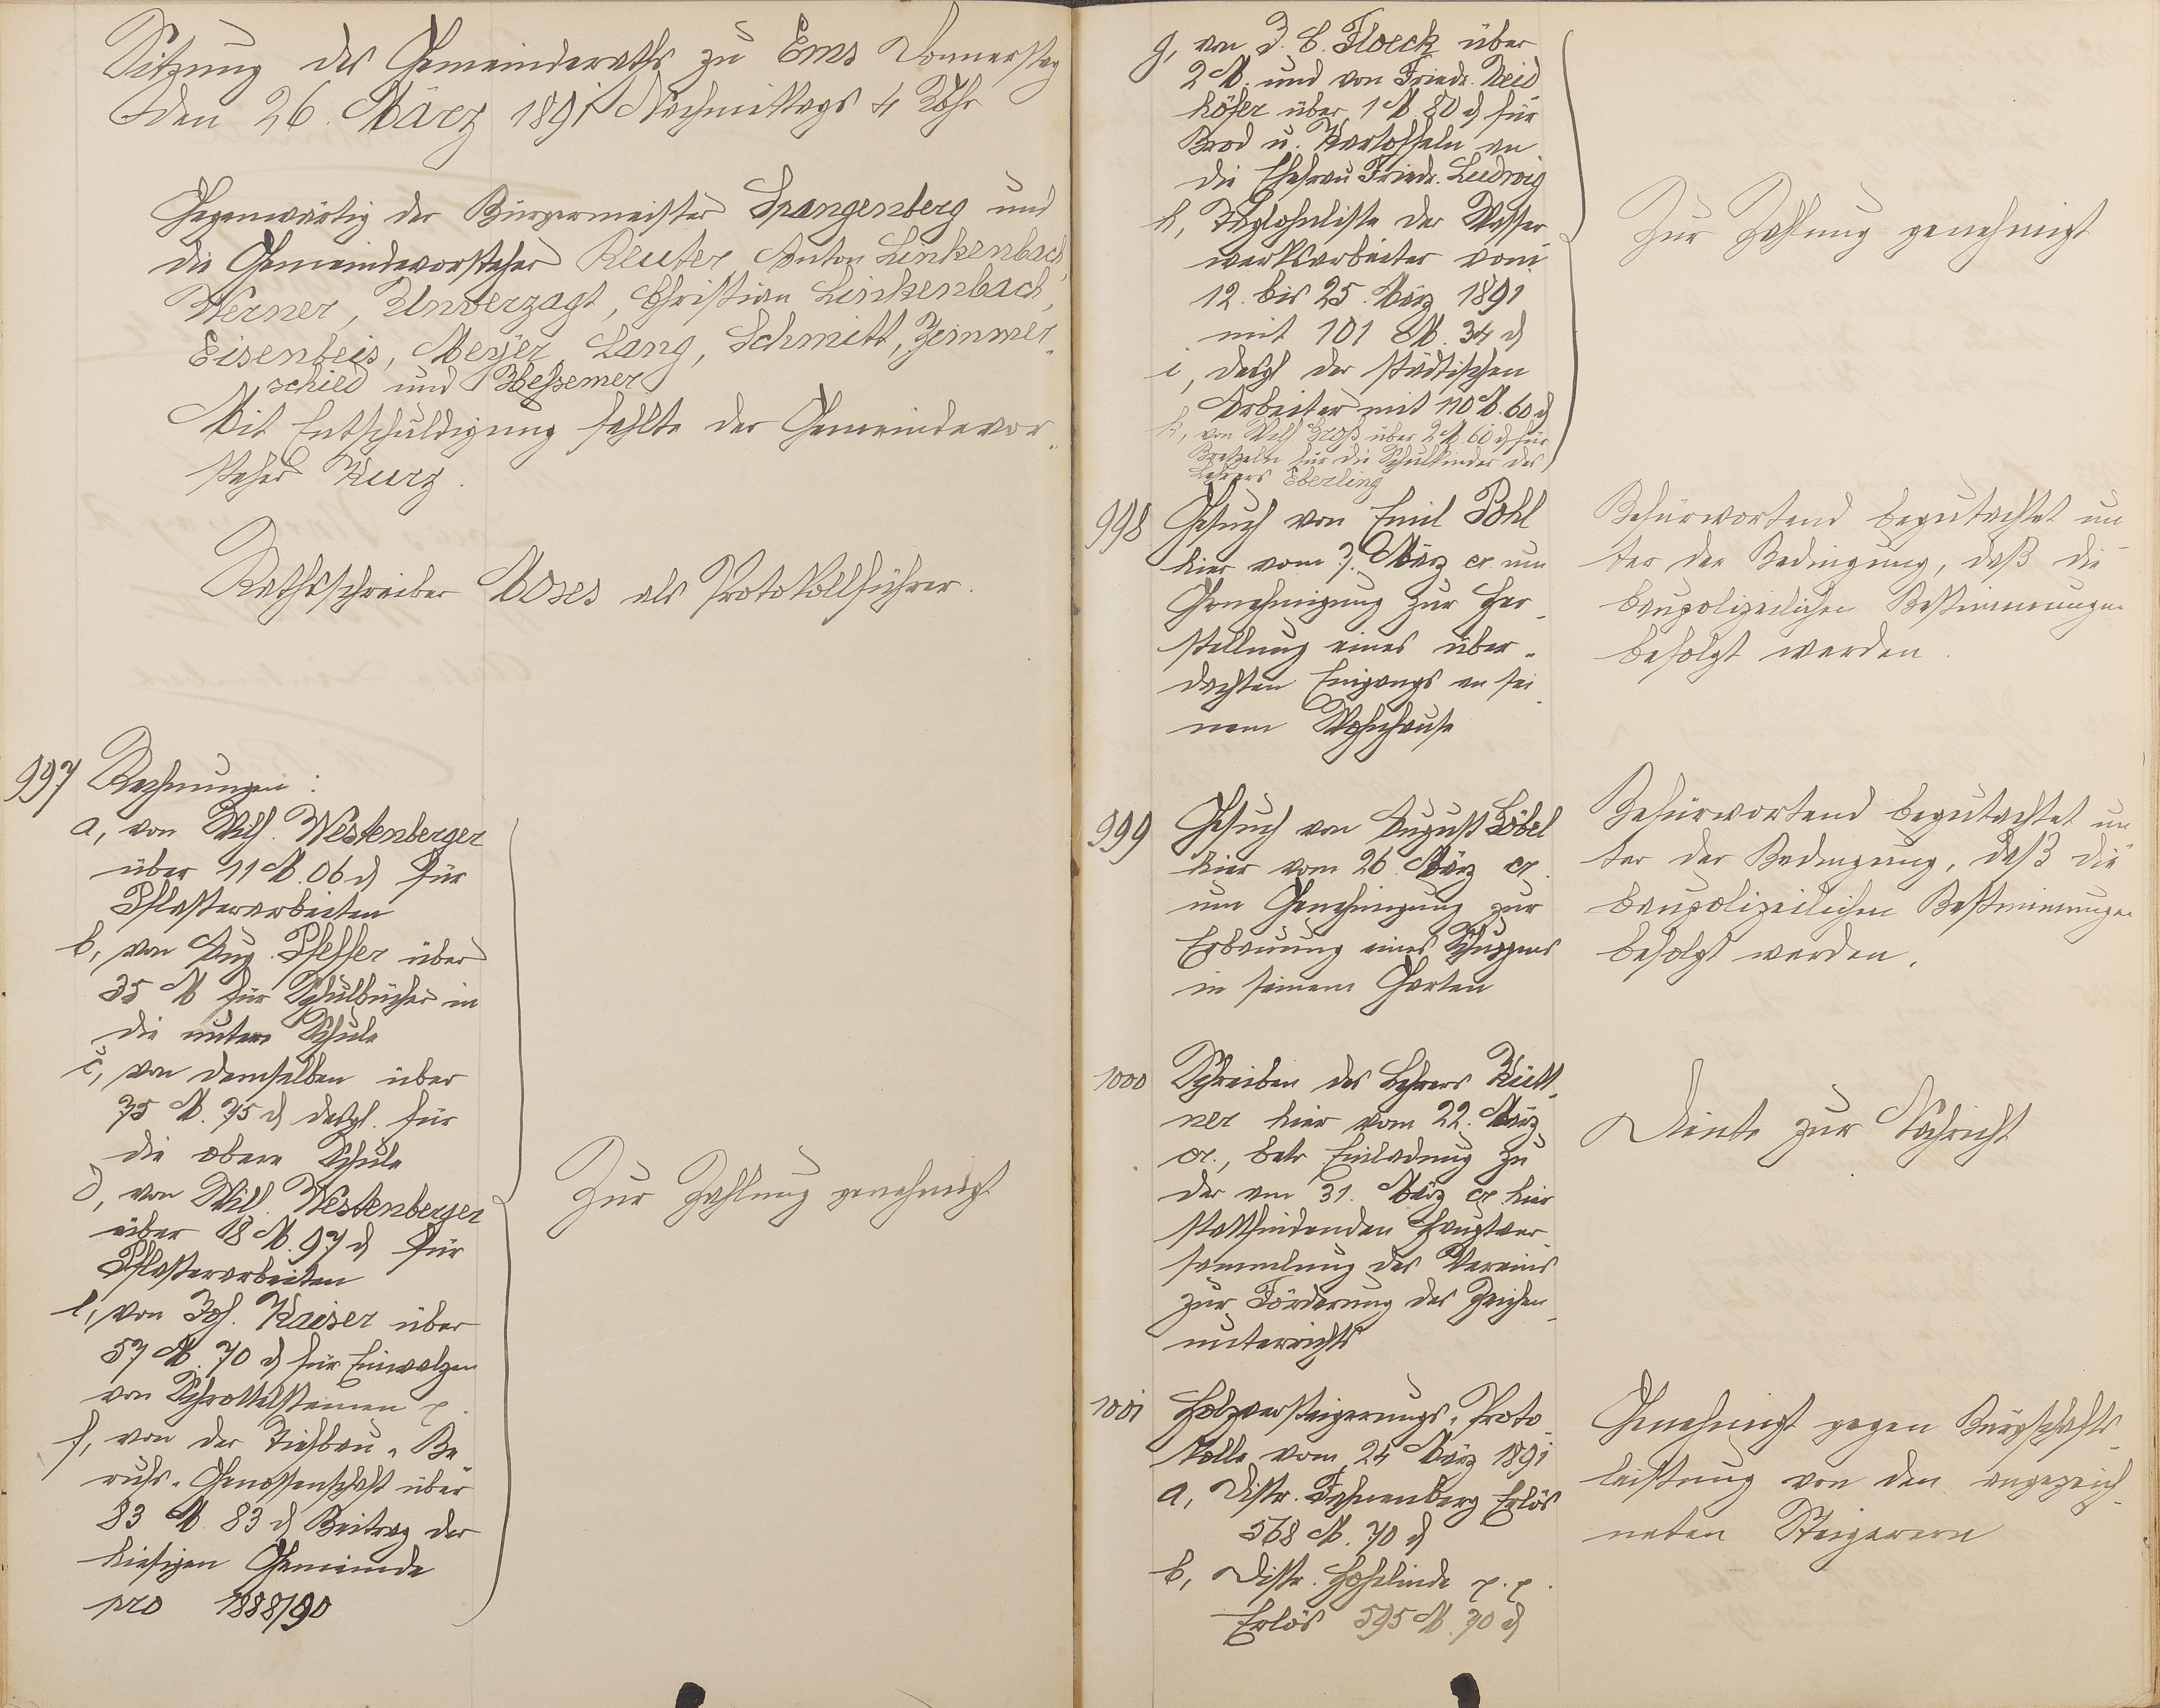 Sitzung des Gemeinderaths zu Ems Donnerstag
den 26. März 1891 Nachmittags 4 Uhr
Gegenwärtig der Bürgermeister Spangenberg und
die Gemeindevorsteher Reuter Anton Linkenbach,
Werner, Unverzagt, Christian Linkenbach,
Eisenbeis, Meyer, Lang, Schmitt, Zimmer-
schied und Hessemer
Mit Entschuldigung fehlte der Gemeindevor-
steher Kurz.
Rathsschreiber Moses als Protokollführer.
997 Rechnungen:
a, von Wilh. Westenberger
über 11 M. 06 d für
Pflasterarbeiten
b, von Aug. Pfeffer über
35 M für Schulbücher in
die untere Schule
c, von demselben über
75 M. 75 d desgl. für
die obere Schule
d, von Wilh. Westenberger
über 18 M. 97 d für
Pflasterarbeiten
e, von Joh. Kaiser über
57 M. 70 d für Einwalzen
von Schrottelsteinen p.
f, von der Tiefbau-Be-
rufs-Genossenschaft über
83 M. 83 d Beitrag der
hiesigen Gemeinde
pro 1888/90
Zur Zahlung genehmigt
g, von J. C. Floeck über
2 M. und von Friedr. Neid-
höfer über 1 M. 80 d für
Brod u. Kartoffeln an
die Ehefrau Friedr. Ludwig
h, Taglohnliste der Wasser-
werksarbeiter vom
12. bis 25. März 1891
mit 101 M. 34 d
i, desgl der städtischen
Arbeiter mit 110 M. 60 d
k, von Wilh Groß über 2 M. 60 d für
Bretzeln für die Schulkinder des
Lehrers Eberling
Zur Zahlung genehmigt
998 Gesuch von Emil Pohl
hier vom 7. März cr um
Genehmigung zur Her-
stellung eines über-
dachten Eingangs an sei-
nem Wohnhause
Befürwortend begutachtet un-
ter der Bedingung, daß die
baupolizeilichen Bestimmungen
befolgt werden.
999 Gesuch von August Löbel
hier vom 26 März cr.
um Genehmigung zur
Erbauung eines Schuppens
in seinem Garten
Befürwortend begutachtet un-
ter der Bedingung, daß die
baupolizeilichen Bestimmungen
befolgt werden.
1000 Schreiben des Lehrers Kütt-
ner hier vom 22. März
cr., betr Einladung zu
der am 31. März cr hier
stattfindenden Hauptver-
sammlung des Vereins
zur Förderung des Zeichen-
unterrichts
Diente zur Nachricht
1001 Holzversteigerungs-Proto-
kolle vom 24 März 1891
a, Distr. Fahnenberg Erlös
568 M. 70 d
b, Distr. Hohelinde p. p.
Erlös 595 M. 70 d
Genehmigt gegen Bürgschafts-
leistung von den angezeich-
neten Steigerern